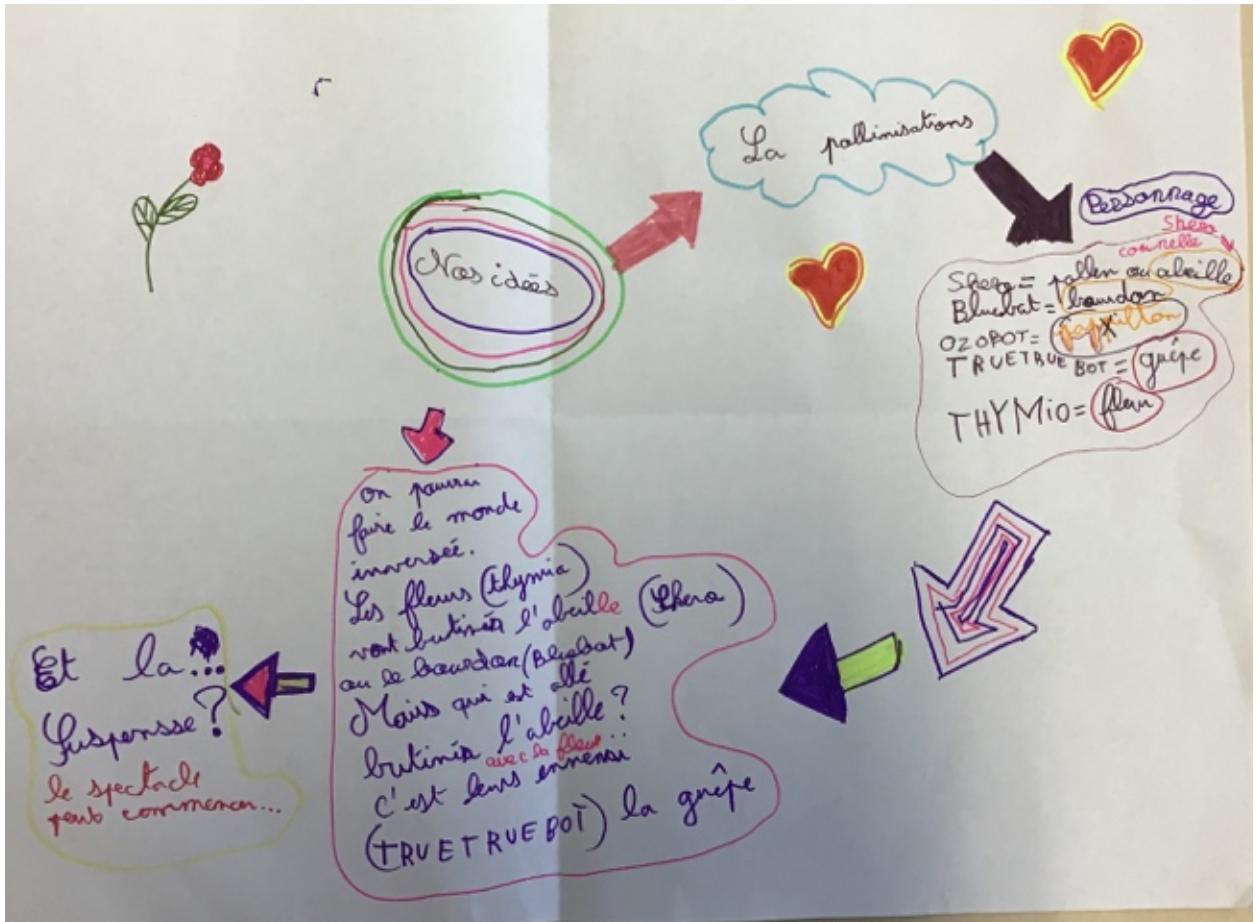 Nos idées
La pollinisations
Personnage
Shero
cornelle
Shero = pollen ou abeille
Bluebot = bourdon
OZOBOT = papillon
TRUETRUE BOT = guêpe
THYMIO = fleur
on pourrai
faire le monde
inversée.
Les fleurs (thymio)
vont butinés l'abeille (Shero)
ou le bourdon (Bluebot)
Mais qui est allé
butinés l'abeille ?
avec la fleur
c'est leurs ennemi
(TRUETRUEBOT) la guêpe
Et la...
Suspensse ?
le spectacle
peut commencer...